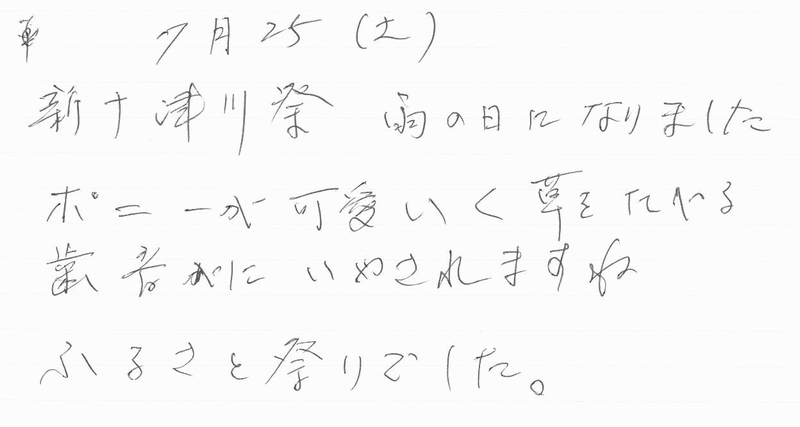 7月25(土)
新十津川祭 雨の日になりました
ポニーが可愛いく草をたべる
歯音がにいやされますね
ふるさと祭りでした。